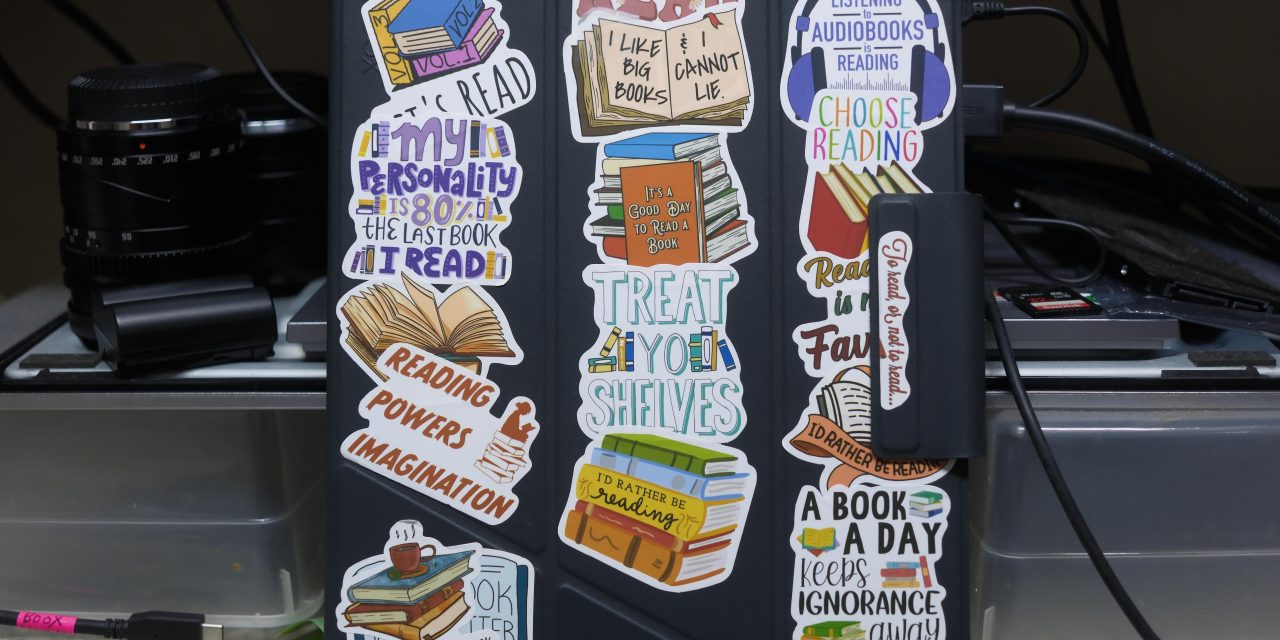 VOL 3
VOL 2
VOL. 1
READ
MY
PERSONALITY
IS 80%
THE LAST BOOK
I READ
READING
POWERS
IMAGINATION
BOOX
I LIKE
BIG
BOOKS
& I
CANNOT
LIE.
IT'S A
GOOD DAY
TO READ A
BOOK
TREAT
YO
SHELVES
I'D RATHER BE
reading
LISTENING
to
AUDIOBOOKS
is
READING
CHOOSE
READING
is
To read, or not to read...
I'D RATHER BE READING
A BOOK
A DAY
KEEPS
IGNORANCE
away
SanDisk